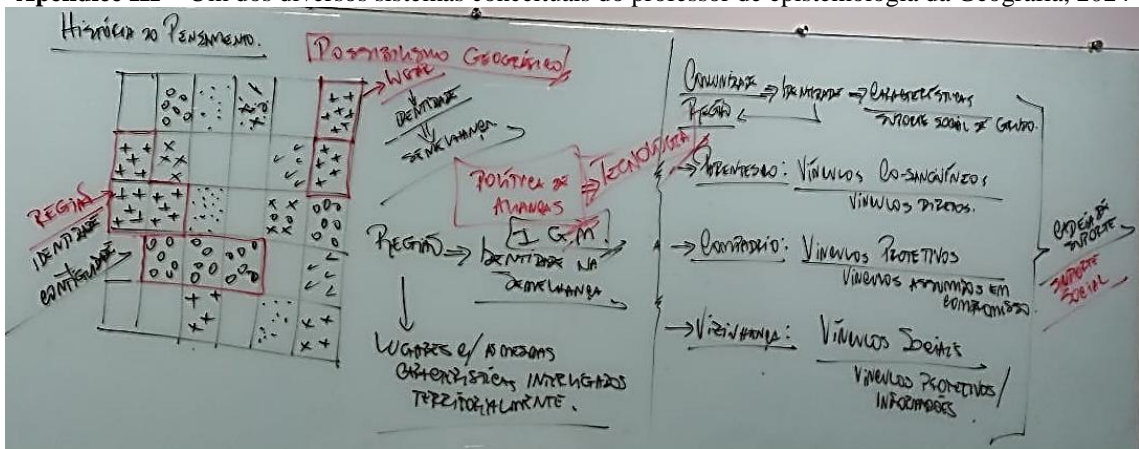 Apêndice III – Um dos diversos sistemas conceituais do professor de epistemologia da Geografia, 2024
HISTÓRIA DO PENSAMENTO.
POSSIBILISMO GEOGRÁFICO
IDENTIDADE
SEMELHANÇA
REGIÃO
IDENTIDADE
CONTIGUIDADE
POLÍTICA DE
ALIANÇAS
TECNOLOGIA
I G.M.
REGIÃO → IDENTIDADE NA
SEMELHANÇA
LUGARES C/ AS MESMAS
CARACTERÍSTICAS INTERLIGADOS
TERRITORIALMENTE.
COMUNIDADE → IDENTIDADE → CARACTERÍSTICAS
REGIÃO
SUPORTE SOCIAL DE GRUPO.
→ PARENTESCO: VÍNCULOS CO-SANGUÍNEOS
VÍNCULOS DIRETOS.
→ COMPADRIO: VÍNCULOS PROTETIVOS
VÍNCULOS ASSUMIDOS EM
COMPROMISSO.
→ VIZINHANÇA: VÍNCULOS SOCIAIS
VÍNCULOS PROTETIVOS/
INFORMAÇÕES
CADEIA DE
SUPORTE
SUPORTE
SOCIAL